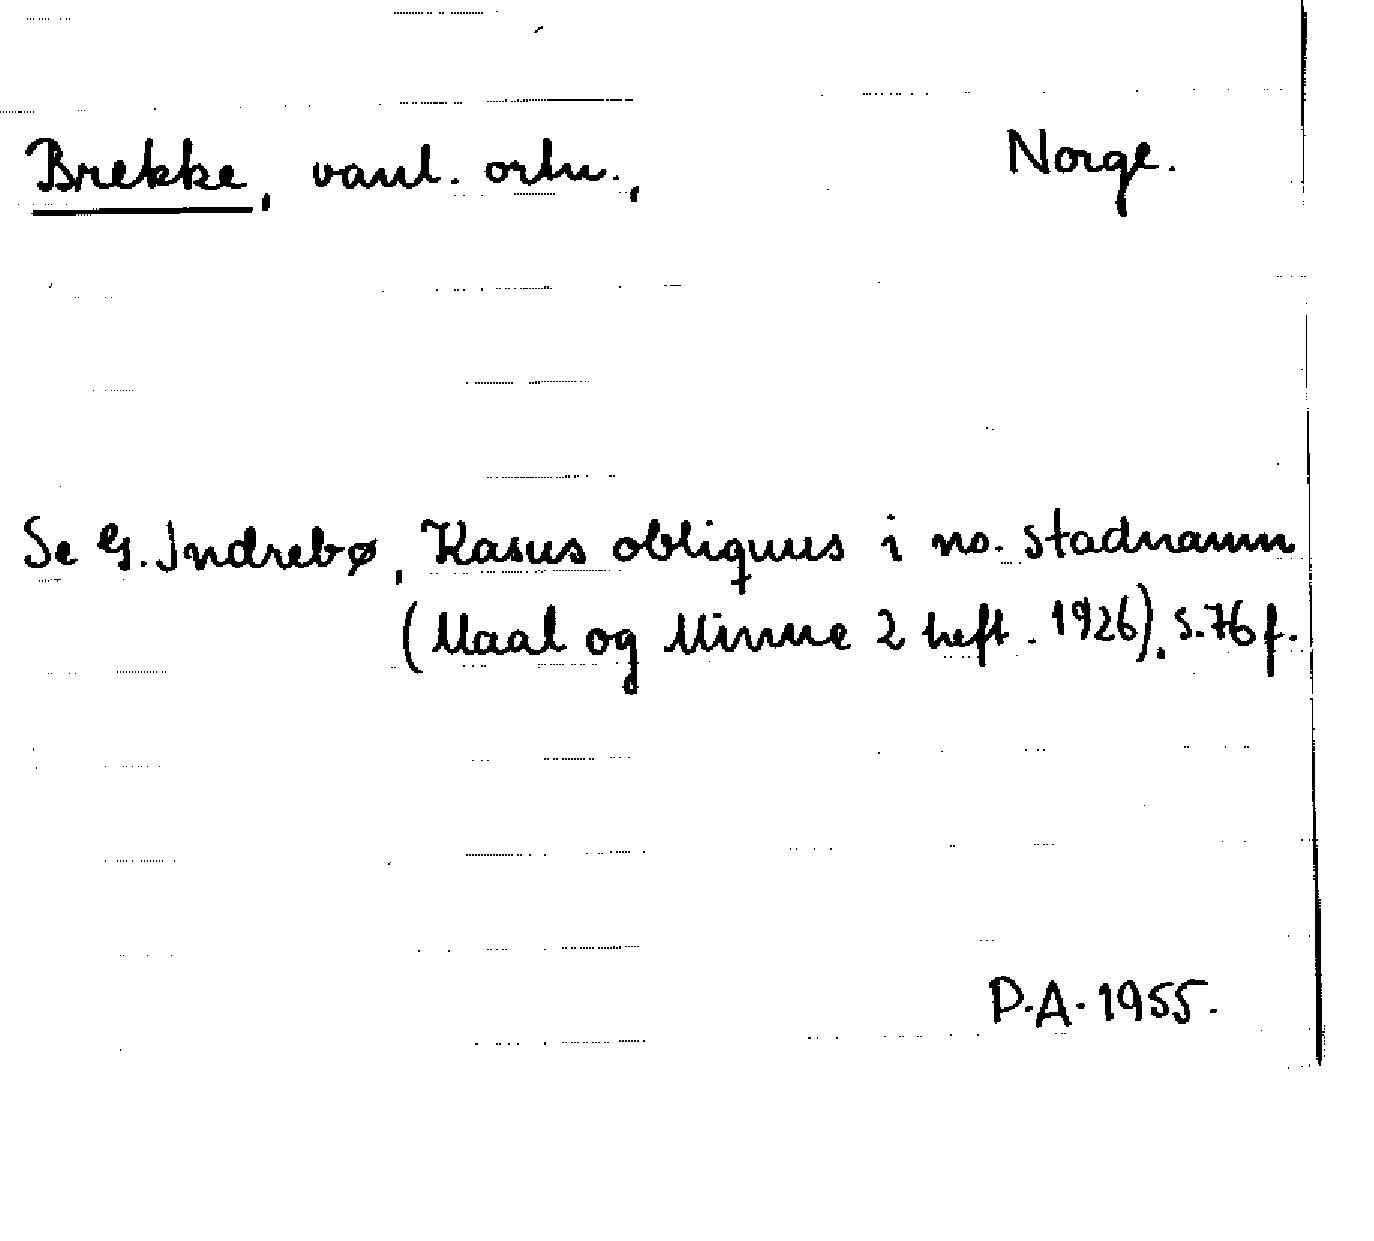 Brekke, vanl. ortn., Norge.
Se G. Indrebø, Kasus obliquus i no. stadnamn
(Maal og Minne 2 heft. 1926). s. 76 f.
D.A. 1955.